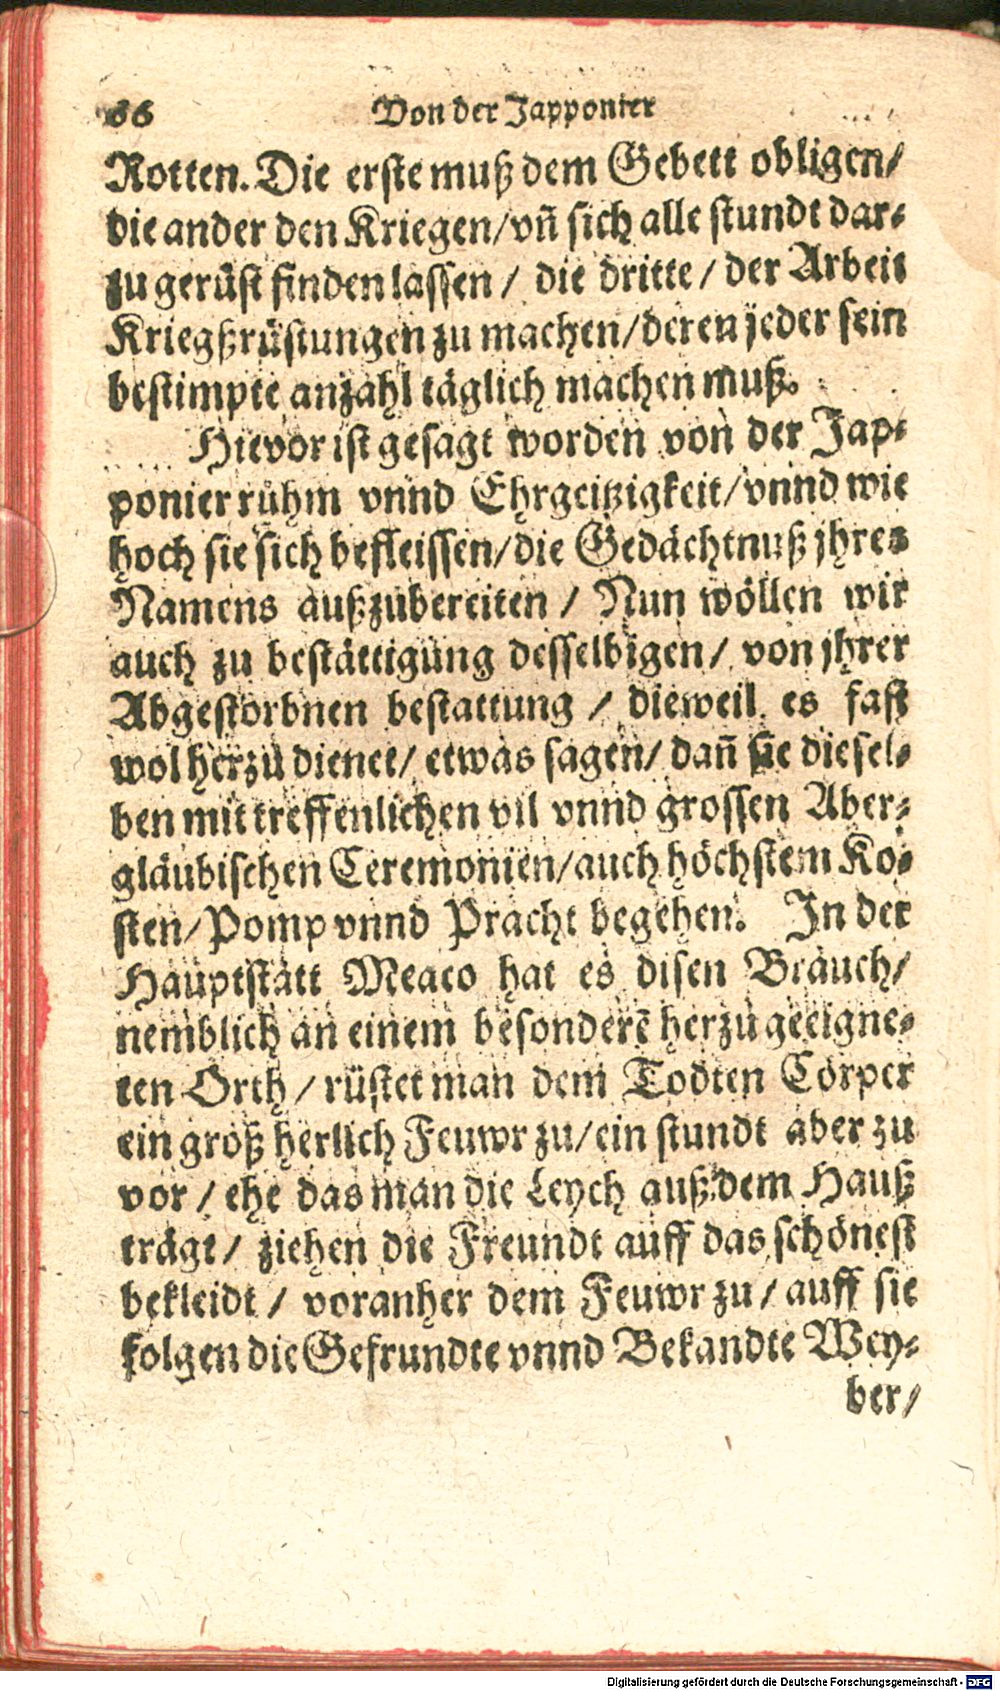 66 Von der Japponier
Rotten. Die erste muß dem Gebett obligen/
die ander den Kriegen/ vñ sich alle stundt dar-
zu gerüst finden lassen/ die dritte/ der Arbeit
Kriegßrüstungen zu machen/ deren jeder sein
bestimpte anzahl täglich machen muß.
Hievor ist gesagt worden von der Jap-
ponier rühm vnnd Ehrgeitzigkeit/ vnnd wie
hoch sie sich befleissen/ die Gedächtnuß jhres
Namens außzubereiten/ Nun wöllen wir
auch zu bestättigung desselbigen/ von jhrer
Abgestorbnen bestattung/ dieweil es fast
wol herzu dienet/ etwas sagen/ dañ sie diesel-
ben mit treffenlichen vil vnnd grossen Aber-
gläubischen Ceremonien/ auch höchstem Ko-
sten/ Pomp vnnd Pracht begehen. In der
Hauptstätt Meaco hat es disen Brauch/
nemblich an einem besonderē herzu geeigne-
ten Orth/ rüstet man dem Todten Cörper
ein groß herlich Feuwr zu/ ein stundt aber zu
vor/ ehe das man die Leych auß dem Hauß
trägt/ ziehen die Freundt auff das schönest
bekleidt/ voranher dem Feuwr zu/ auff sie
folgen die Gefrundte vnnd Bekandte Wey-
ber/
Digitalisierung gefördert durch die Deutsche Forschungsgemeinschaft - DFG